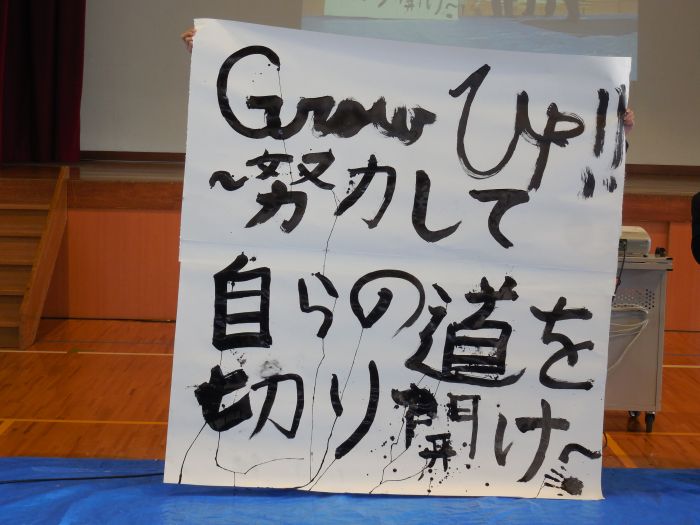 Grow Up!!
~努力して
自らの道を
切り開け~